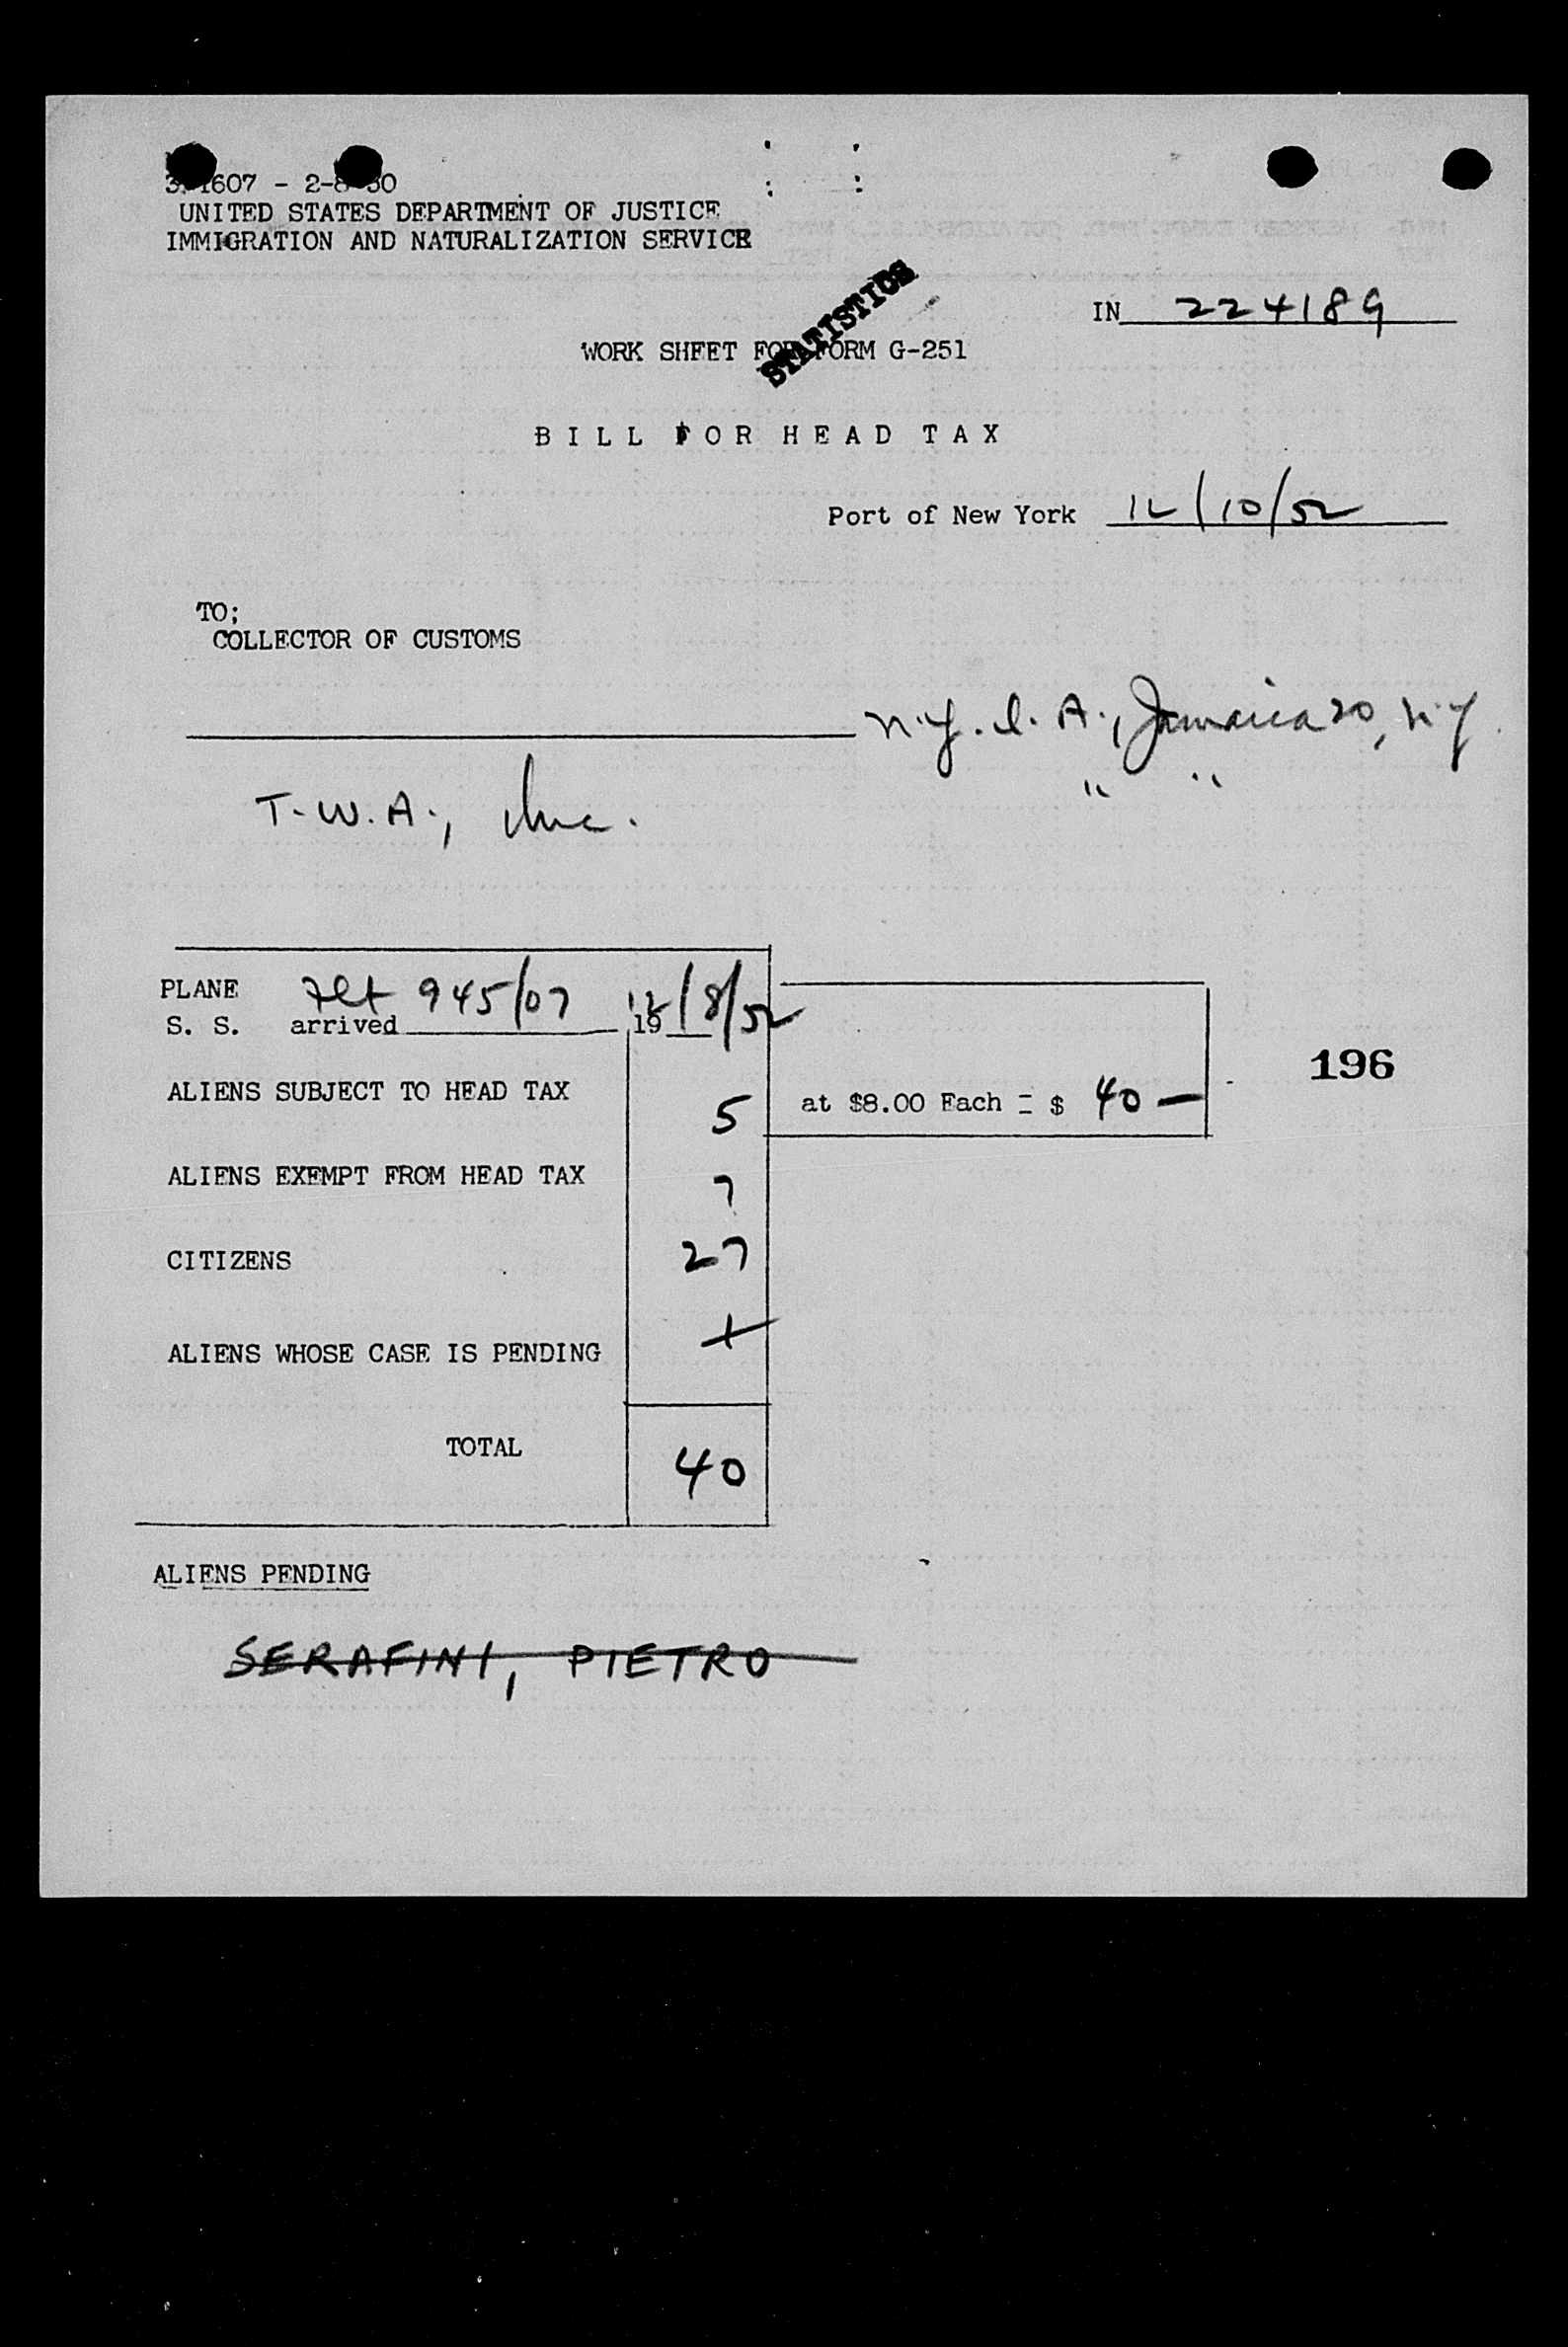 1607 - 2-8-50
UNITED STATES DEPARTMENT OF JUSTICE
IMMIGRATION AND NATURALIZATION SERVICE
STATISTICS
IN 224189
WORK SHEET FOR FORM G-251
BILL FOR HEAD TAX
Port of New York 12/10/52
TO;
COLLECTOR OF CUSTOMS
N.Y. I. A., Jamaica 20, N.Y.
T.W.A., Inc. " "
PLANE Flt 945/07 12/8/52
S. S. arrived 19
ALIENS SUBJECT TO HEAD TAX 5 at $8.00 Each = $ 40 —
196
ALIENS EXEMPT FROM HEAD TAX 7
CITIZENS 27
ALIENS WHOSE CASE IS PENDING 1
TOTAL 40
ALIENS PENDING
SERAFINI, PIETRO